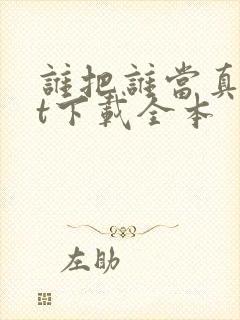 誰把誰當真
t下載全本
左助